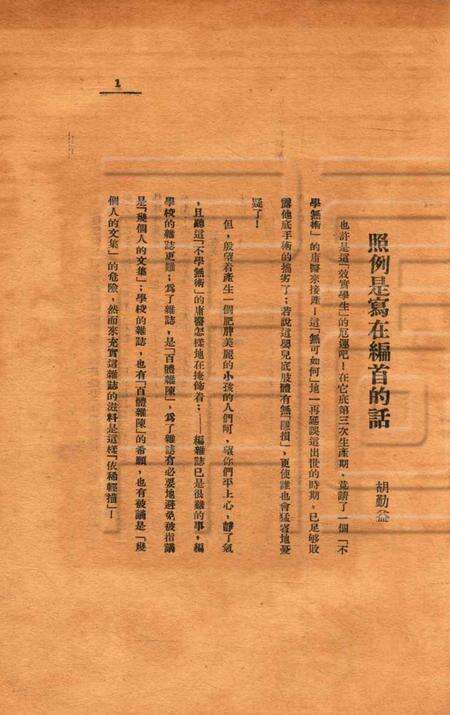 照例是寫在編首的話
胡勤益
也許是這「效實學生」的厄運吧!在它底第三次生產期,竟請了一個「不
學無術」的庸醫來接產!這「無可如何」地一再延誤這出世的時期,已足够敗
露他底手術的拙劣了;若說這嬰兒底肢體有無「損」,更使誰也會猛省地憂
疑了!
但,般望着產生一個肥胖美麗的小孩的人們呵,望你們平上心,靜了氣
,且聽這「不學無術」的庸醫怎樣地在接佈着:——編雜誌已是很難的事,編
學校的雜誌更難;爲了雜誌,是「百體雜陳」,爲了雜誌有必要地避免被指謫
是「幾個人的文集」;學校的雜誌,也有「百體雜陳」的希願,也有被議是「幾
個人的文集」的危險,然而來充實這雜誌的滋料是這樣「依稀輕描」!
1